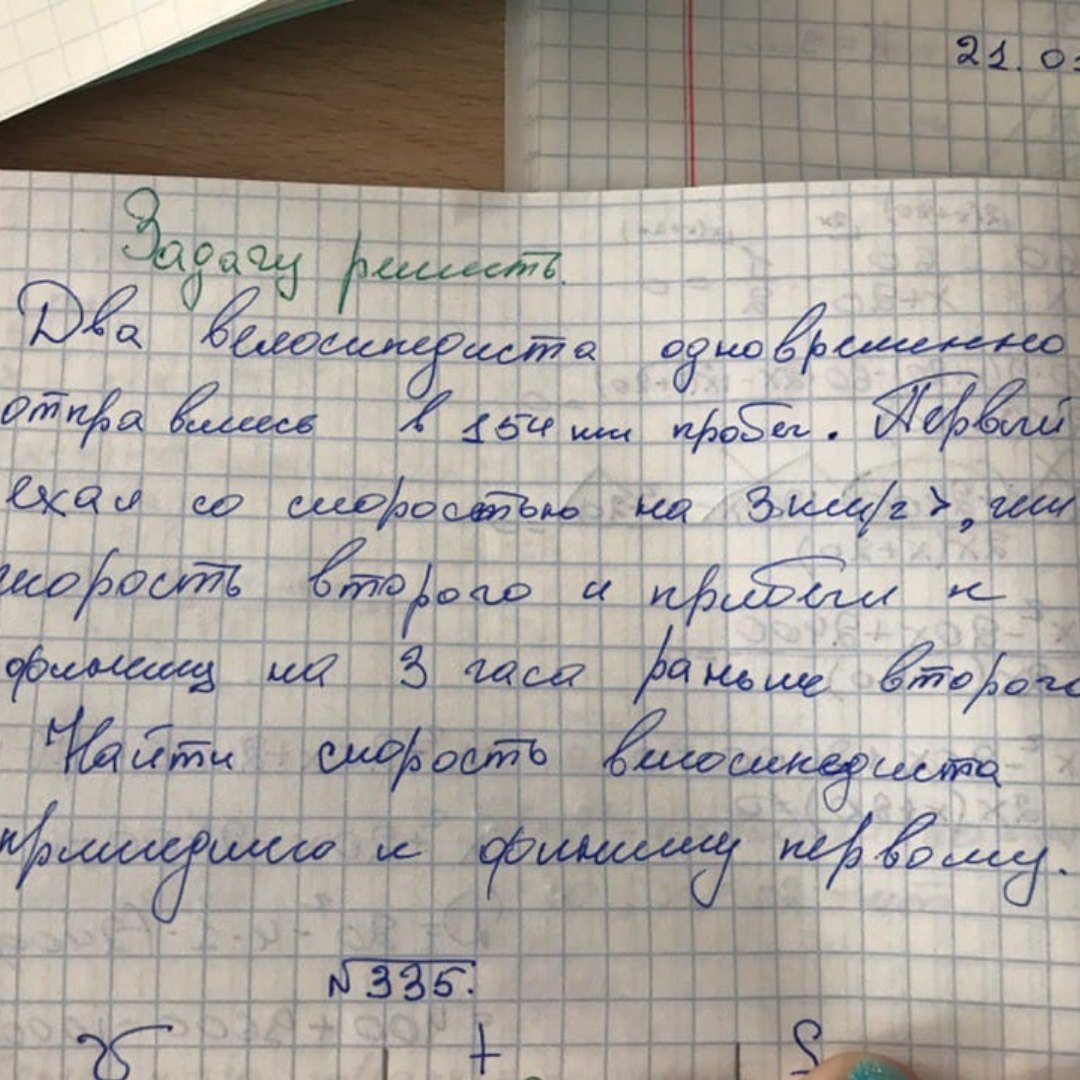 21.01
Задачу решить.
Два велосипедиста одновременно
отправились в 154 км пробег. Первый
ехал со скоростью на 3 км/ч >, чем
скорость второго и прибыл к
финишу на 3 часа раньше второго
Найти скорость велосипедиста
пришедшего к финишу первому.
√335.
t S